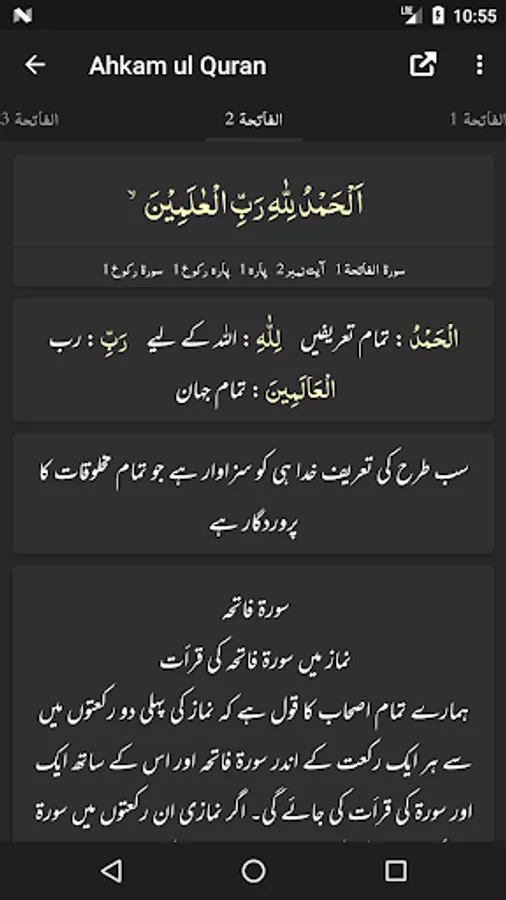 LTE 10:55
Ahkam ul Quran
الفاتحة 1 الفاتحة 2 الفاتحة 3
اَلْحَمْدُ لِلّٰهِ رَبِّ الْعٰلَمِيْنَ ۙ
سورة الفاتحة 1 آیت نمبر 2 پارہ 1 پارہ رکوع 1 سورة رکوع 1
الْحَمْدُ : تمام تعریفیں لِلّٰهِ : اللہ کے لیے رَبِّ : رب
الْعَالَمِينَ : تمام جہان
سب طرح کی تعریف خدا ہی کو سزاوار ہے جو تمام مخلوقات کا
پروردگار ہے
سورة فاتحہ
نماز میں سورة فاتحہ کی قرأت
ہمارے تمام اصحاب کا قول ہے کہ نماز کی پہلی دو رکعتوں میں
سے ہر ایک رکعت کے اندر سورة فاتحہ اور اس کے ساتھ ایک
اور سورة کی قرأت کی جائے گی۔ اگر نمازی ان رکعتوں میں سورة